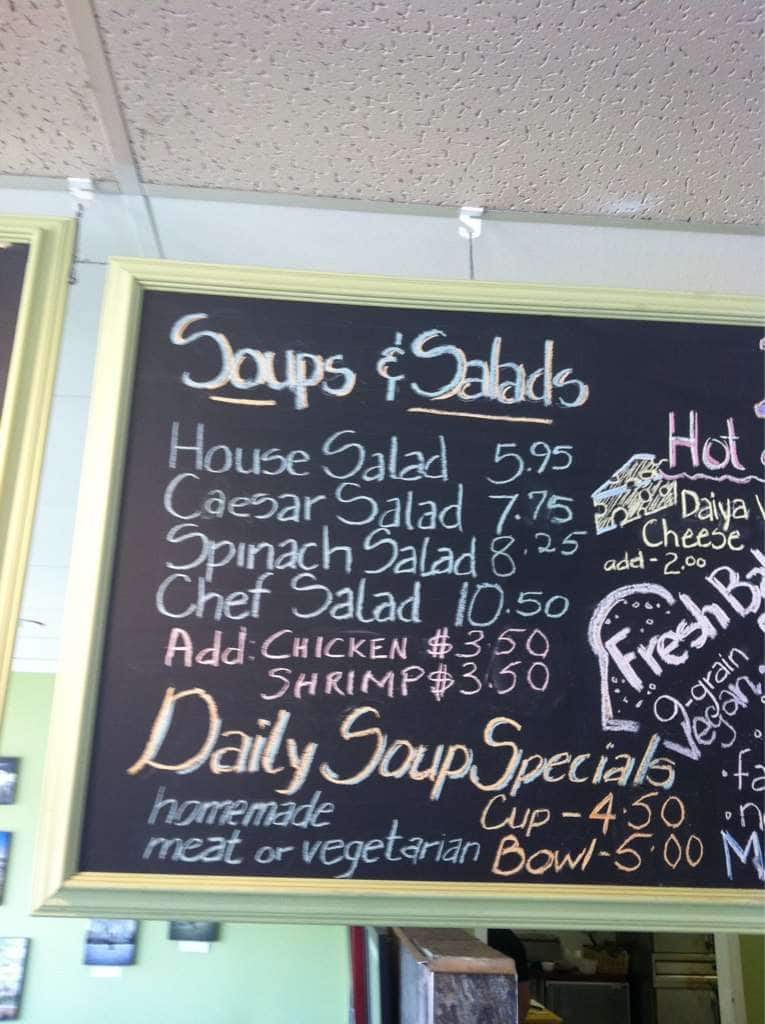 Soups & Salads
House Salad 5.95
Caesar Salad 7.75
Spinach Salad 8.25
Chef Salad 10.50
Add: CHICKEN $3.50
SHRIMP $3.50
Daily Soup Specials
homemade Cup - 4.50
meat or vegetarian Bowl - 5.00
Hot
Daiya
Cheese
add - 2.00
Fresh
9-grain
Vegan